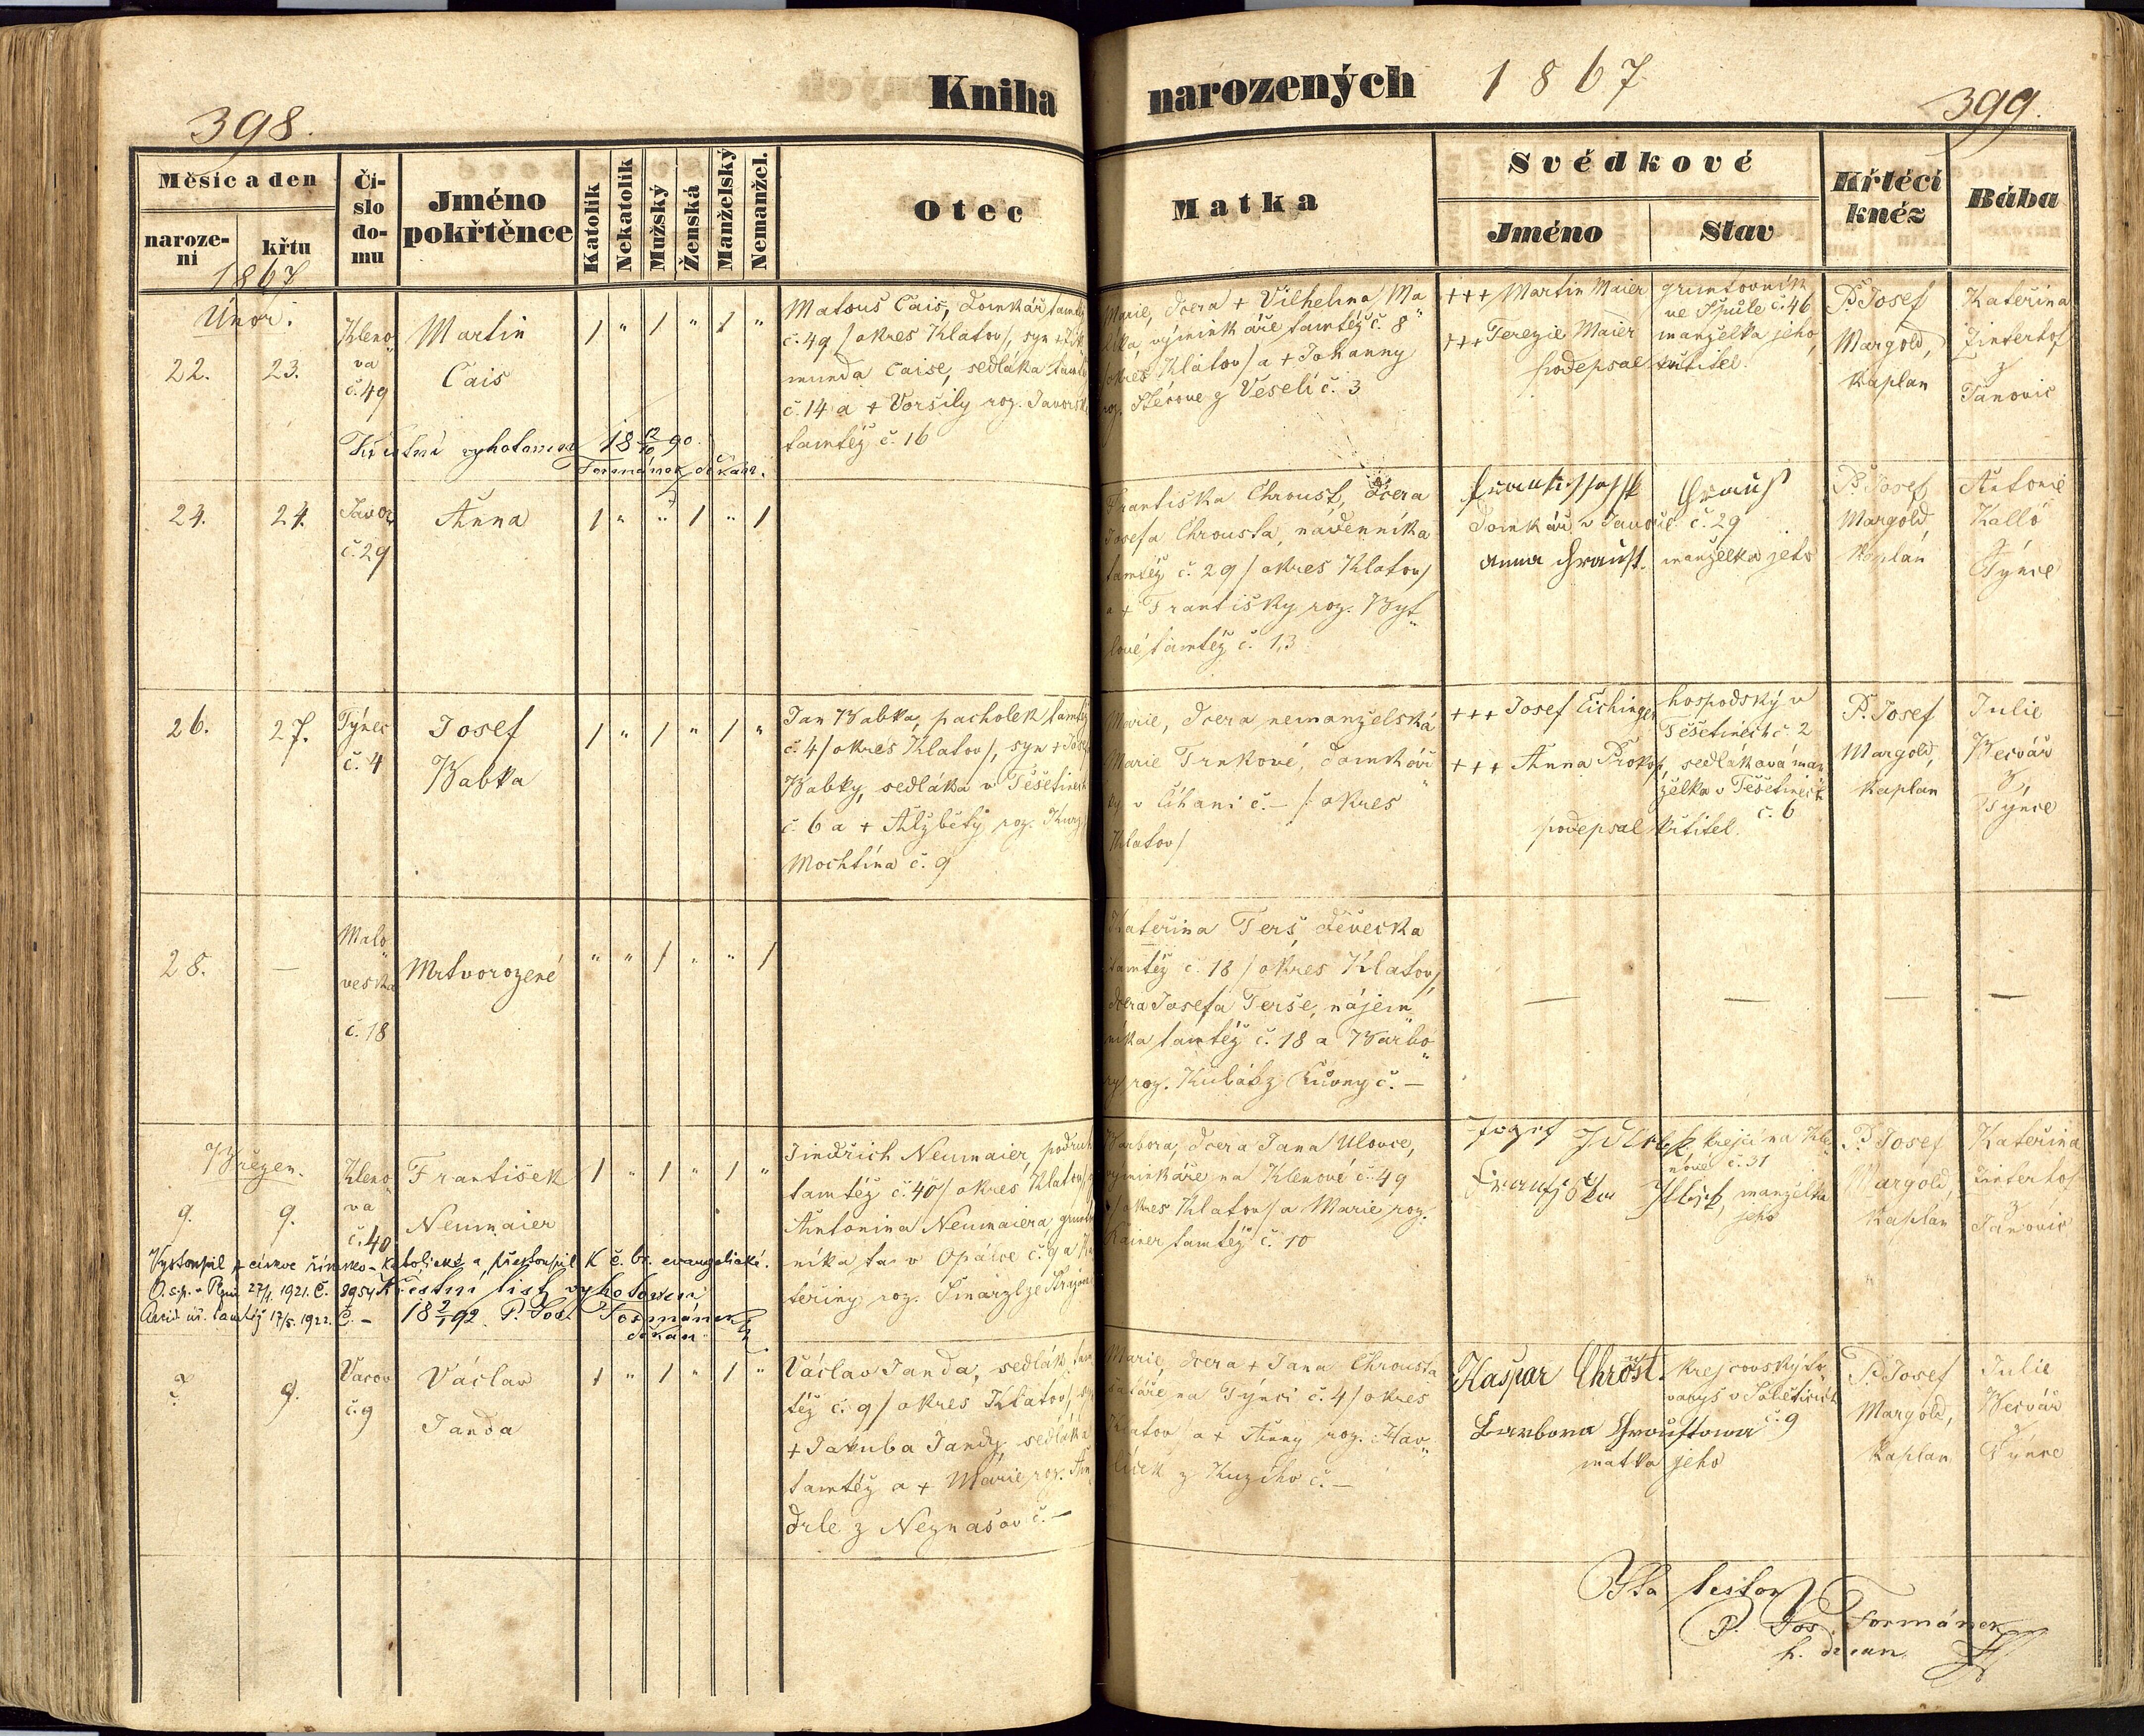 398.
Kniha
narozených 1867
399.
Měsíc a den
naroze-
ní
křtu
Čí-
slo
do-
mu
Jméno
pokřtěnce
Katolík
Nekatolík
Mužský
Ženská
Manželský
Nemanžel.
Otec
Matka
Svědkové
Jméno
Stav
Křtěcí
kněz
Bába
1867
Únor.
22. 23.
Kleno„
vá
č. 49
Martin
Cais
1 „ 1 „ 1 „
Matouš Cais, domkář tamtéž
č. 49 / okres Klatov/, syn +
munda Caise, sedláka
č. 14 a + Voršily roz.
tamtéž č. 16
Marie, dcera + Vilhelma Ma„
výminkáře tamtéž č. 8
/okres Klatov/ a + Johanny
roz. z Veselí č. 3
+++ Martin Maier
+++ Terezie Maier
gruntovník
ve Špůli č. 46
manželka jeho,
podepsal křtitel.
P. Josef
Margold,
Kaplan
Kateřina
Zinterhof
z
Janovic
Křestní vyhotoven 18 12/10 90.
Formánek děkan.
24. 24.
Javor
č. 29
Anna
1 „ „ 1 „ 1
Františka Chroust, dcera
Josefa Chrousta, nádenníka
tamtéž č. 29 / okres Klatov/
a + Františky roz. Byt„
lové tamtéž č. 13
domkář v Javoře č. 29
manželka jeho
P. Josef
Margold
Kaplán
Antonie
Kallo
Týnce
26. 27.
Týnec
č. 4
Josef
Babka
1 „ 1 „ 1 „
Jan Babka, pacholek tamtéž
č. 4 / okres Klatov/, syn + Josefa
Babky, sedláka v Těšetinech
č. 6 a + Alžběty roz.
Mochtína č. 9
Marie, dcera nemanželská
Marie Trnkové, domkář„
ky v Číhani č. – /: okres
Klatov/
+++ Josef Eichinger
+++ Anna Prokop,
hospodský v
Těšetinech č. 2
sedláková man„
želka v Těšetinech
č. 6
podepsal křtitel.
P. Josef
Margold,
Kaplan
Julie
Bečvář
z
Týnce
28. —
Malo„
veska
č. 18
Mrtvorozené
„ „ 1 „ „ 1
Kateřina Terš, děvečka
tamtéž č. 18 / okres Klatov/,
dcera Josefa Terše, nájem„
níka tamtéž č. 18 a Barbo„
ry roz. č. —
— — — —
Březen.
9. 9.
Kleno„
vá
č. 40
František
Neumaier
1 „ 1 „ 1 „
Jindřich Neumaier, podruh
tamtéž č. 40 / okres Klatov/
Antonina Neumaiera,
níka v Opálce č. 9 a Ka
teřiny roz.
Barbora, dcera Jana Ulovce,
výminkáře na Klenové č. 49
/okres Klatov/ a Marie roz.
Rainer tamtéž č. 10
Jozef
krejčí na Kle„
nové č. 31
manželka
jeho
P. Josef
Margold,
Kaplan
Kateřina
Zinterhof
Janovic
Vystoupil z církve římsko-katolické a přestoupil k č. br. evangelické.
O. s. p. 27/1. 1921. Č. 8954
tamtéž 17/5. 1922. Č. –
Křestní list vyhotoven
18 2/1 92. P. Jos. Formánek
děkan.
? 9.
Vacov
č. 9
Václav
Janda
1 „ 1 „ 1 „
Václav Janda, sedlák tam„
též č. 9 / okres Klatov/,
+ Jakuba Jandy, sedláka
tamtéž a + Marie roz. An„
drle z Neznašov č. —
Marie, dcera + Jana Chrousta
na Týnci č. 4 / okres
Klatov/ a + Anny roz. Hav„
líček z č. —
Kašpar Chrost.
krejčovský to„
varyš v
č. 9
Barbora
matka jeho
P. Josef
Margold,
Kaplan
Julie
Bečvář
Týnce
Ita testor
P. Jos. Formánek
h. decan